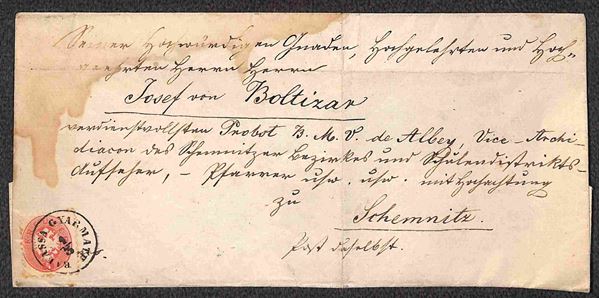 Seiner Hochwürdigen Gnaden, Hochgelehrten und Hoch=
geehrten Herrn Herrn
Josef von Boltizar
verdienstvollsten Probst B. M. V. de Albey, Vice-Archi-
diacon des Schemnitzer Bezirkes und Schulendistrikts-
Aufseher, – Pfarrer usw. usw. mit Hochachtung
zu
Schemnitz.
Post daselbst.
BALASSA GYARMATH